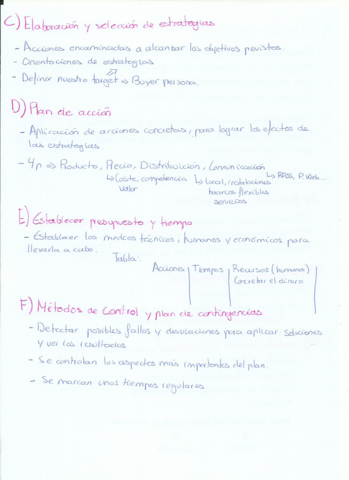 C) Elaboración y selección de estrategias
- Acciones encaminadas a alcanzar los objetivos previstos.
- Orientaciones de estrategias
- Definir nuestro target ⇒ Buyer persona.
D) Plan de acción
- Aplicación de acciones concretas, para lograr los efectos de
las estrategias
- 4p ⇒ Producto, Precio, Distribución, Comunicación
↳ Coste, competencia ↳ local, instalaciones ↳ RRSS, P. Web...
valor horarios flexibles
servicios
E) Establecer presupuesto y tiempo
- Establecer los medios técnicos, humanos y económicos para
llevarla a cabo.
Tabla:
Acciones | Tiempos | Recursos (humanos)
Concretar el dinero
F) Métodos de Control y plan de contingencias
- Detectar posibles fallos y desviaciones para aplicar soluciones
y ver los resultados
- Se controlan los aspectos más importantes del plan.
- Se marcan unos tiempos regulares